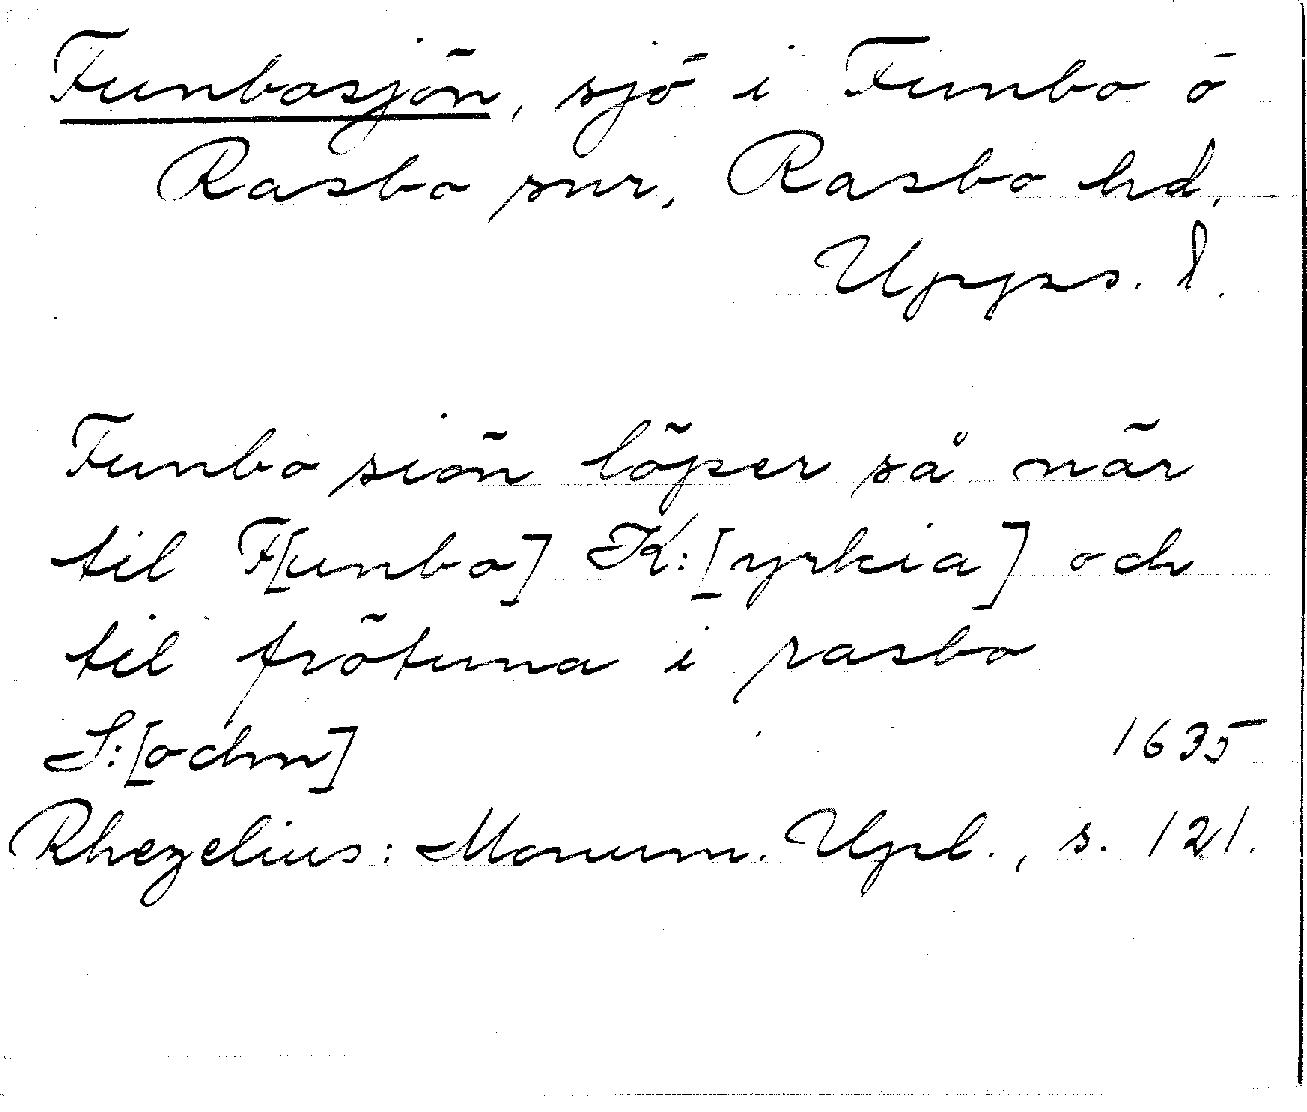 Funbosjön, sjö i Funbo o
Rasbo snr, Rasbo hd,
Upps. l.
Funbo siön löper så när
til F[unbo] K:[yrkia] och
til frötuna i rasbo
S:[ochn] 1635
Rhezelius: Monum. Upl., s. 121.